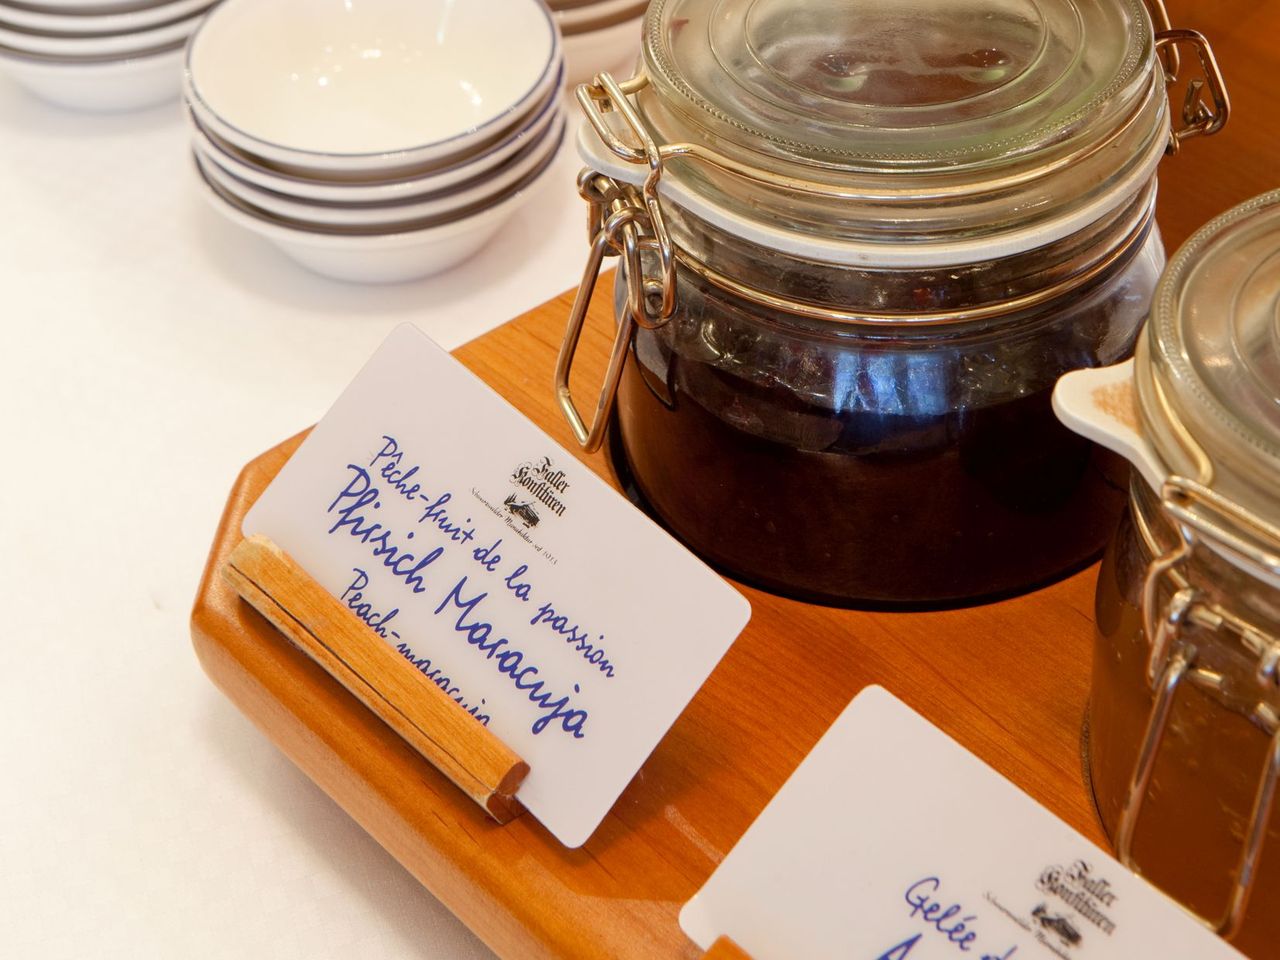 Faller
Konfitüren
Schwarzwälder Manufaktur seit 1913
Pêche-fruit de la passion
Pfirsich Maracuja
Peach-maracuja
Faller
Konfitüren
Gelée